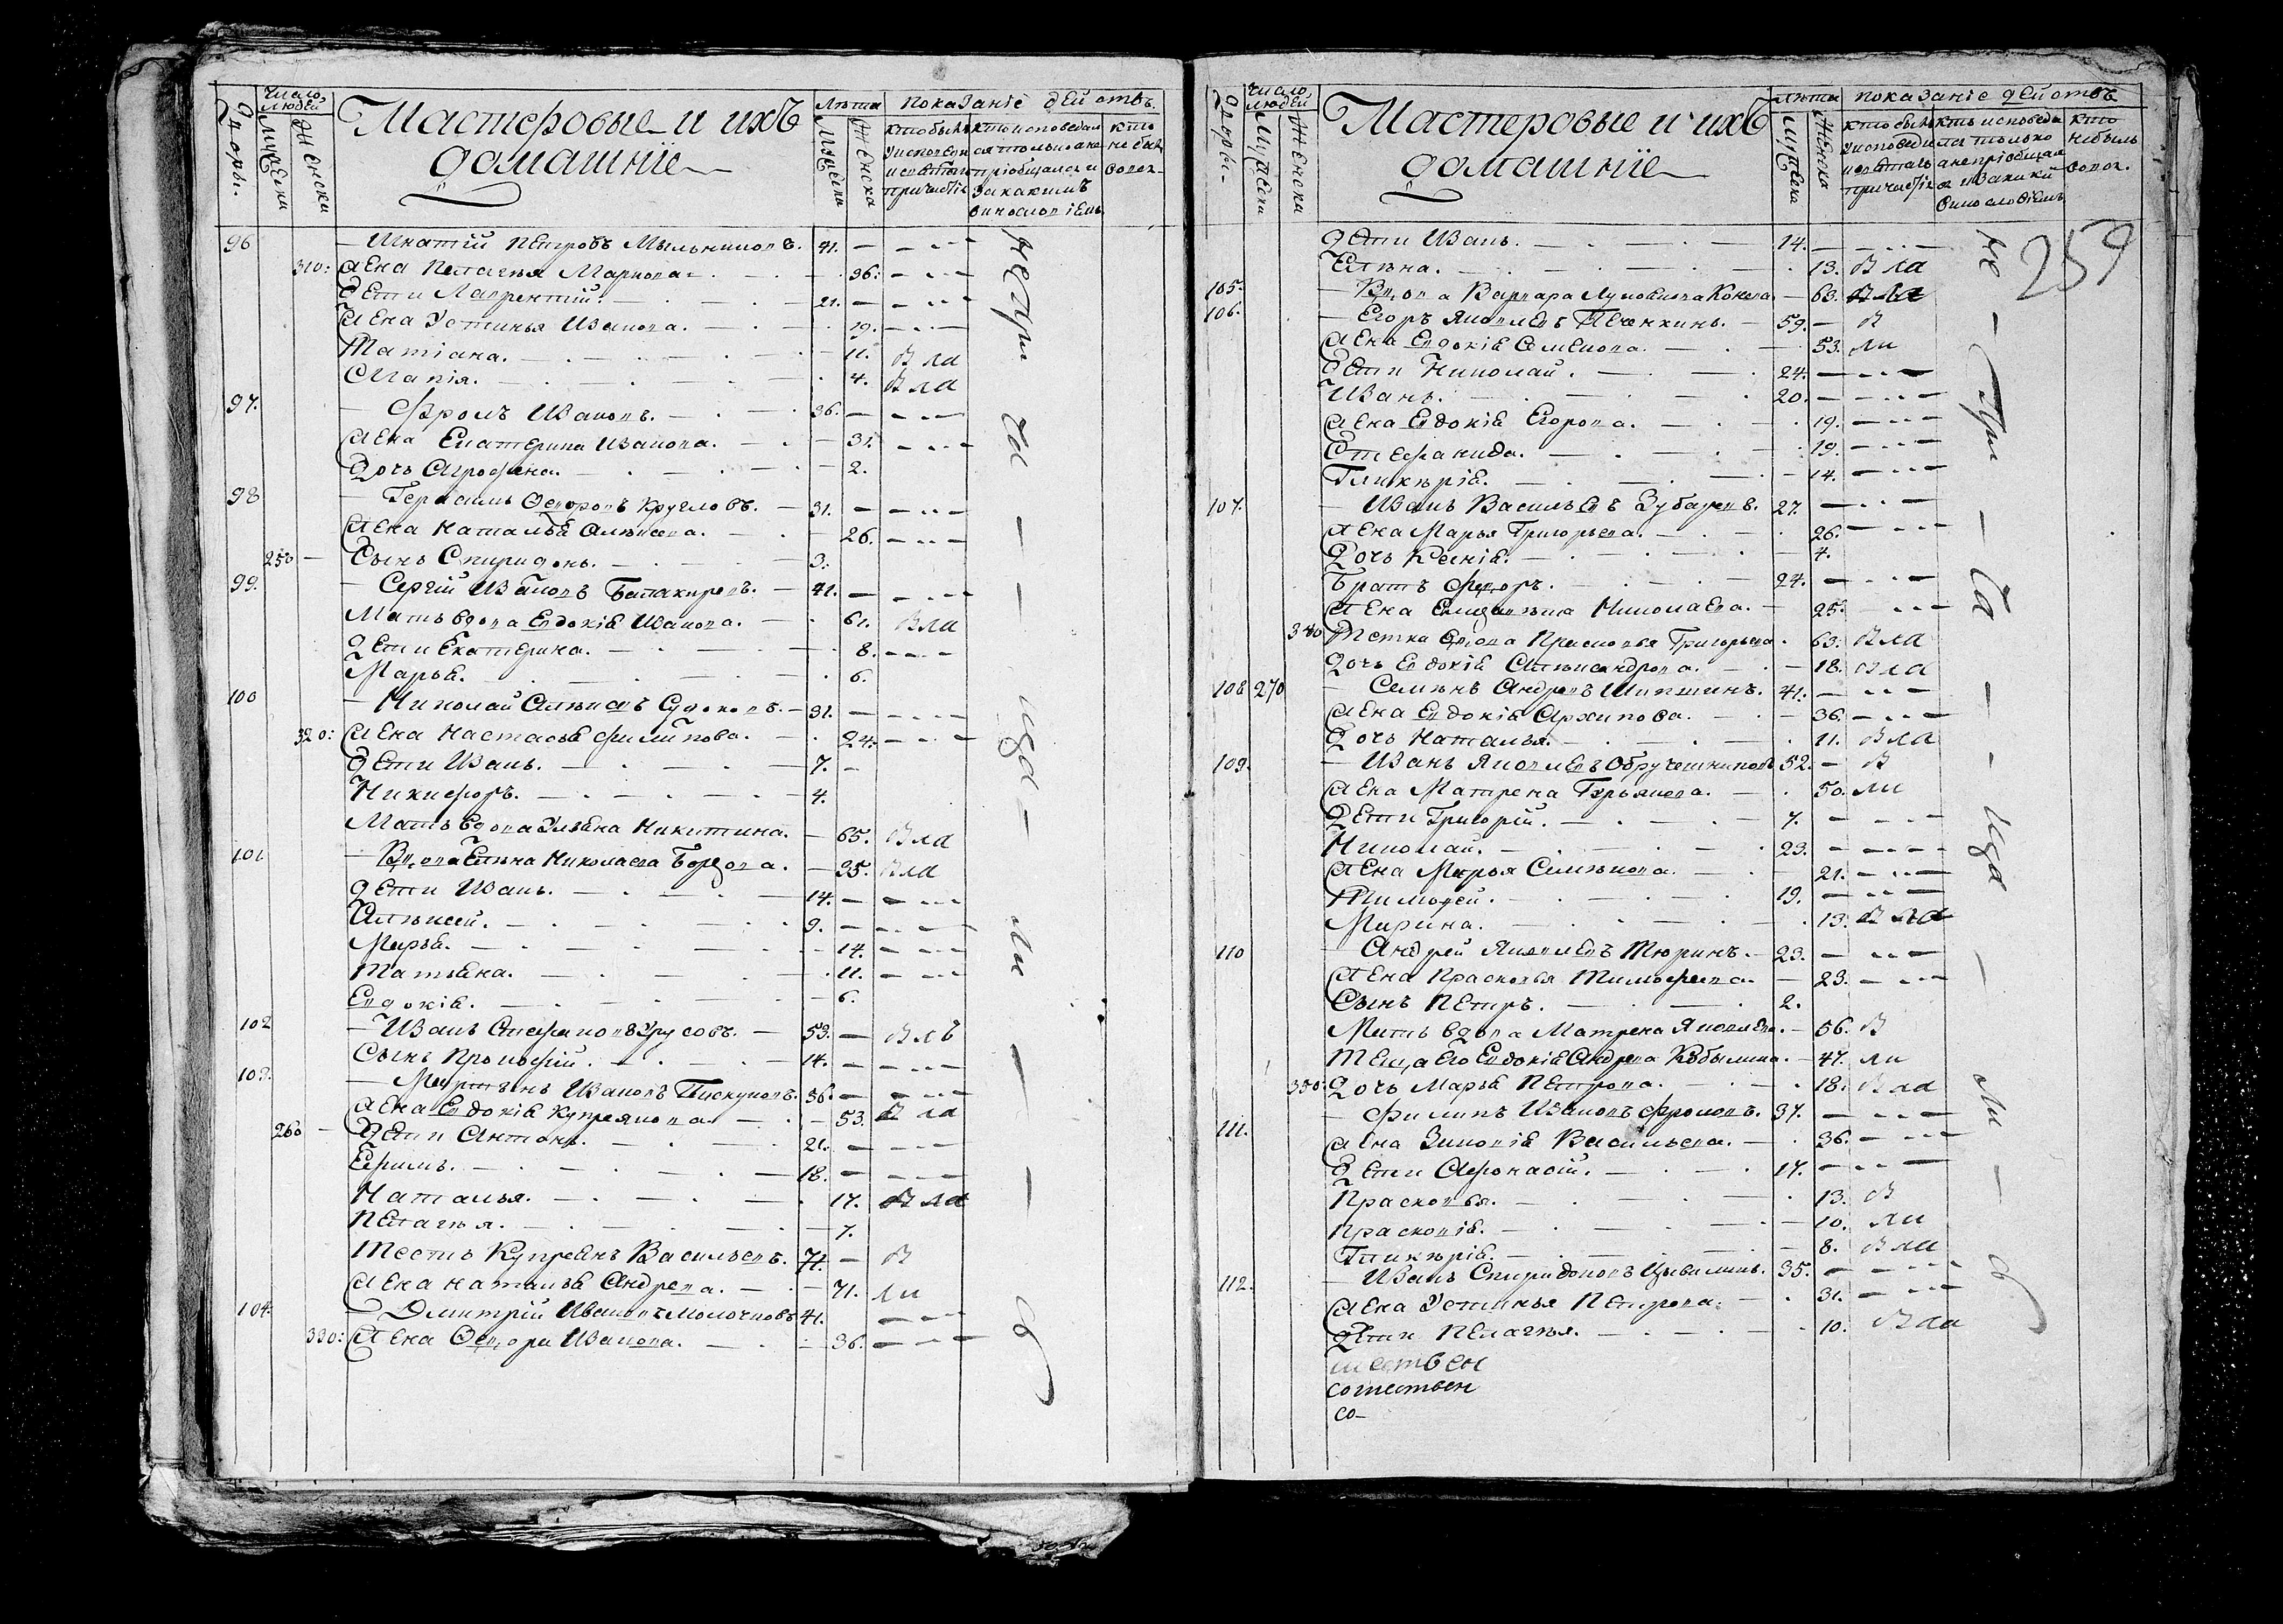 Дворы.
Число людей
Мужеска
Женска
Мастеровые и ихъ домашніе
Лѣта
Мужеска
Женска
Показаніе действъ.
кто былъ у исповеди и святаго причастія
кто исповедался только а не пріобщался и за какимъ винословіемъ
кто не былъ
96 — Игнатій Петровъ Мыльниковъ. 41.
310: Жена Пелагѣя Маркова. 36.
Дети Лаврентій. 21.
Жена Устинья Иванова. 19.
Татіана. 11. Была
Марія. 4. Была
97. — Фролъ Ивановъ. 36.
Жена Екатерина Иванова. 31.
Дочь Агрофена. 2.
98 — Герасимъ Федоровъ Кругловъ. 31.
Жена Наталья Алѣксева. 26.
250 — Сынъ Спиридонъ. 3.
99. — Сергій Ивановъ Балакиревъ. 41.
Мать вдова Евдокія Иванова. 61. Была
Дети Екатерина. 8.
Марья. 6.
100 — Николай Алѣксевъ Судоковъ. 31.
320: Жена Настасья Филипова. 24.
Дети Иванъ. 7.
Никифоръ. 4.
Мать вдова Ульяна Никитина. 65. Была
101 — Вдова Елѣна Николаева Борзова. 35. Была
Дети Иванъ. 14.
Алѣксей. 9.
Марья. 14.
Татьяна. 11.
Евдокія. 6.
102 — Иванъ Стефановъ Урусовъ. 53. Былъ
Сынъ Прокофій. 14.
103. — Мартынъ Ивановъ Пискуновъ. 56.
Жена Евдокія Купреянова. 53. Была
260 — Дети Антонъ. 21.
Ефимъ. 18.
Наталья. 17. Была
Пелагѣя. 7.
Тесть Купреянъ Васильевъ. 71. Б
Жена Наталья Андрева. 71. ли
104. — Дмитрій Ивановъ Молочковъ 41.
330: Жена Федора Иванова. 36.
не при ча ща ли сь
Дворы.
Число людей
Мужеска
Женска
Мастеровые и ихъ домашніе
Лѣта
Мужеска
Женска
показаніе действъ
кто былъ у исповеди и святаго причастія
кто исповедался только а не пріобщался и за какимъ винословіемъ
кто небылъ
259
Дети Иванъ. 14.
Елѣна. 13. Была
105. — Вдова Варвара Конева 63. Была
106. — Егоръ Яковлевъ Печенкинъ. 59. Б
Жена Евдокія Семенова. 53. ли
Дети Николай. 24.
Иванъ. 20.
Жена Евдокія Егорова. 19.
Стефанида. 19.
Гликѣрія. 14.
107. — Иванъ Васильевъ Зубаревъ. 27.
Жена Марья Григорьева. 26.
Дочь Ксенія. 4.
Братъ Федоръ. 24.
Жена Елизавѣта Николаева. 25.
340 Тетка вдова Прасковья Григорьева. 63. Была
Дочь Евдокія Алѣксандрова. 18. Была
108 270 — Семѣнъ Андревъ Шипшинъ. 41.
Жена Евдокія Архипова. 36.
Дочь Наталья. 11. Была
109. — Иванъ Яковлевъ Обручешниковъ 52. Б
Жена Матрена Гурьянова. 50. ли
Дети Григорій. 7.
Николай. 23.
Жена Марья Семѣнова. 21.
Тимофей. 19.
Марина. 13. Была
110 — Андрей Яковлевъ Тюринъ. 23.
Жена Прасковья Тимофеева. 23.
Сынъ Петръ. 2.
Мать вдова Матрена Яковлева. 56. Б
Теща его Евдокія Андрева Кобылина. 47. ли
350: Дочь Марья Петрова. 18. Была
111. — Филипъ Ивановъ Фроловъ. 37.
Жена Зиновія Васильева. 36.
Дети Афонасій. 17.
Прасковья. 13. Б
Прасковія. 10. ли
Гликѣрія. 8. Были
112. — Иванъ Спиридоновъ Цывилинъ. 35.
Жена Устинья Петрова. 31.
Дети Пелагѣя. 10. Была
шествен
сошествен
со-
не при ча ща ли сь